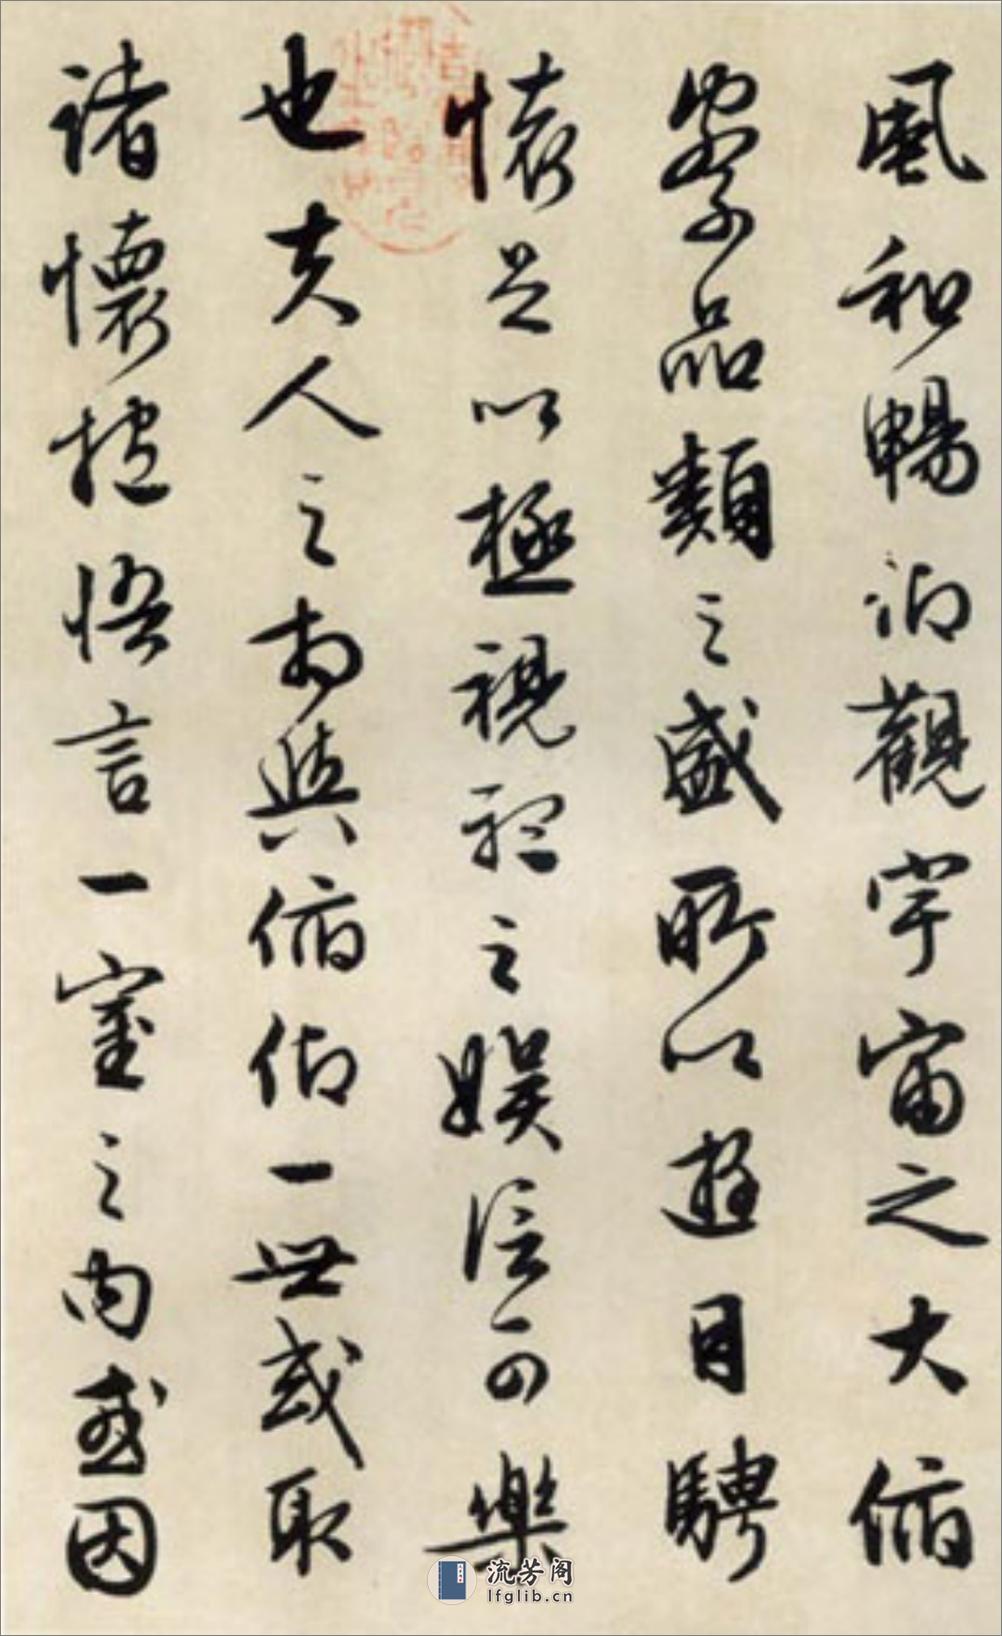 風和暢仰觀宇宙之大俯
察品類之盛所以遊目騁
懷足以極視聽之娛信可樂
也夫人之相與俯仰一世或取
諸懷抱悟言一室之內或因
流芳阁
lfglib.cn